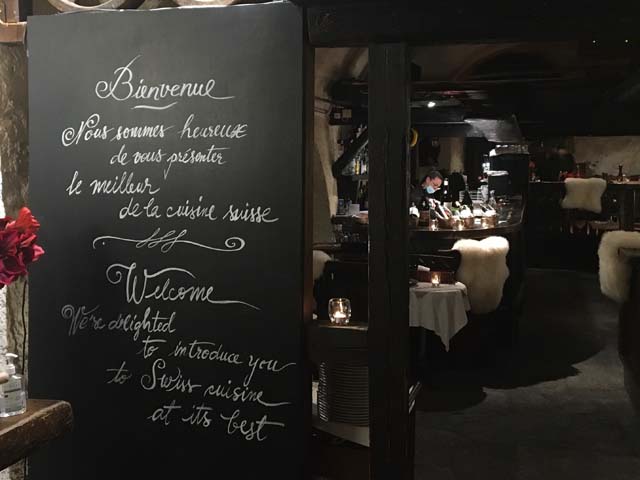 Bienvenue
Nous sommes heureuse
de vous présenter
le meilleur
de la cuisine suisse
Welcome
We're delighted
to introduce you
to Swiss cuisine
at its best